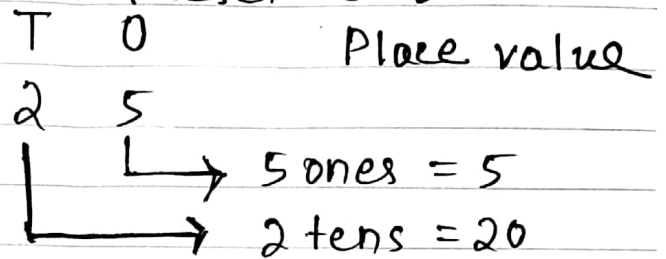 T O Place value
2 5
5 ones = 5
2 tens = 20